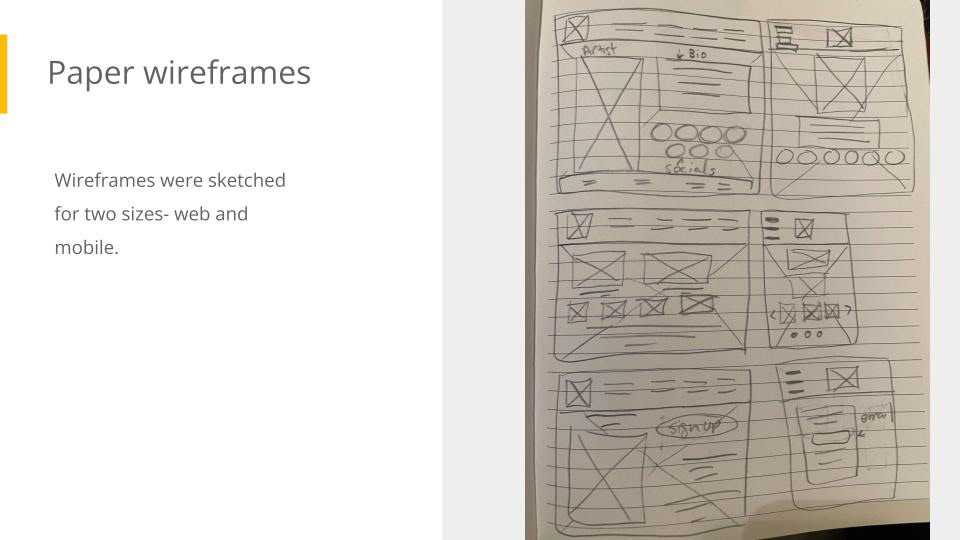 Paper wireframes
Wireframes were sketched
for two sizes- web and
mobile.
Artist
↓ Bio
socials
sign up
email